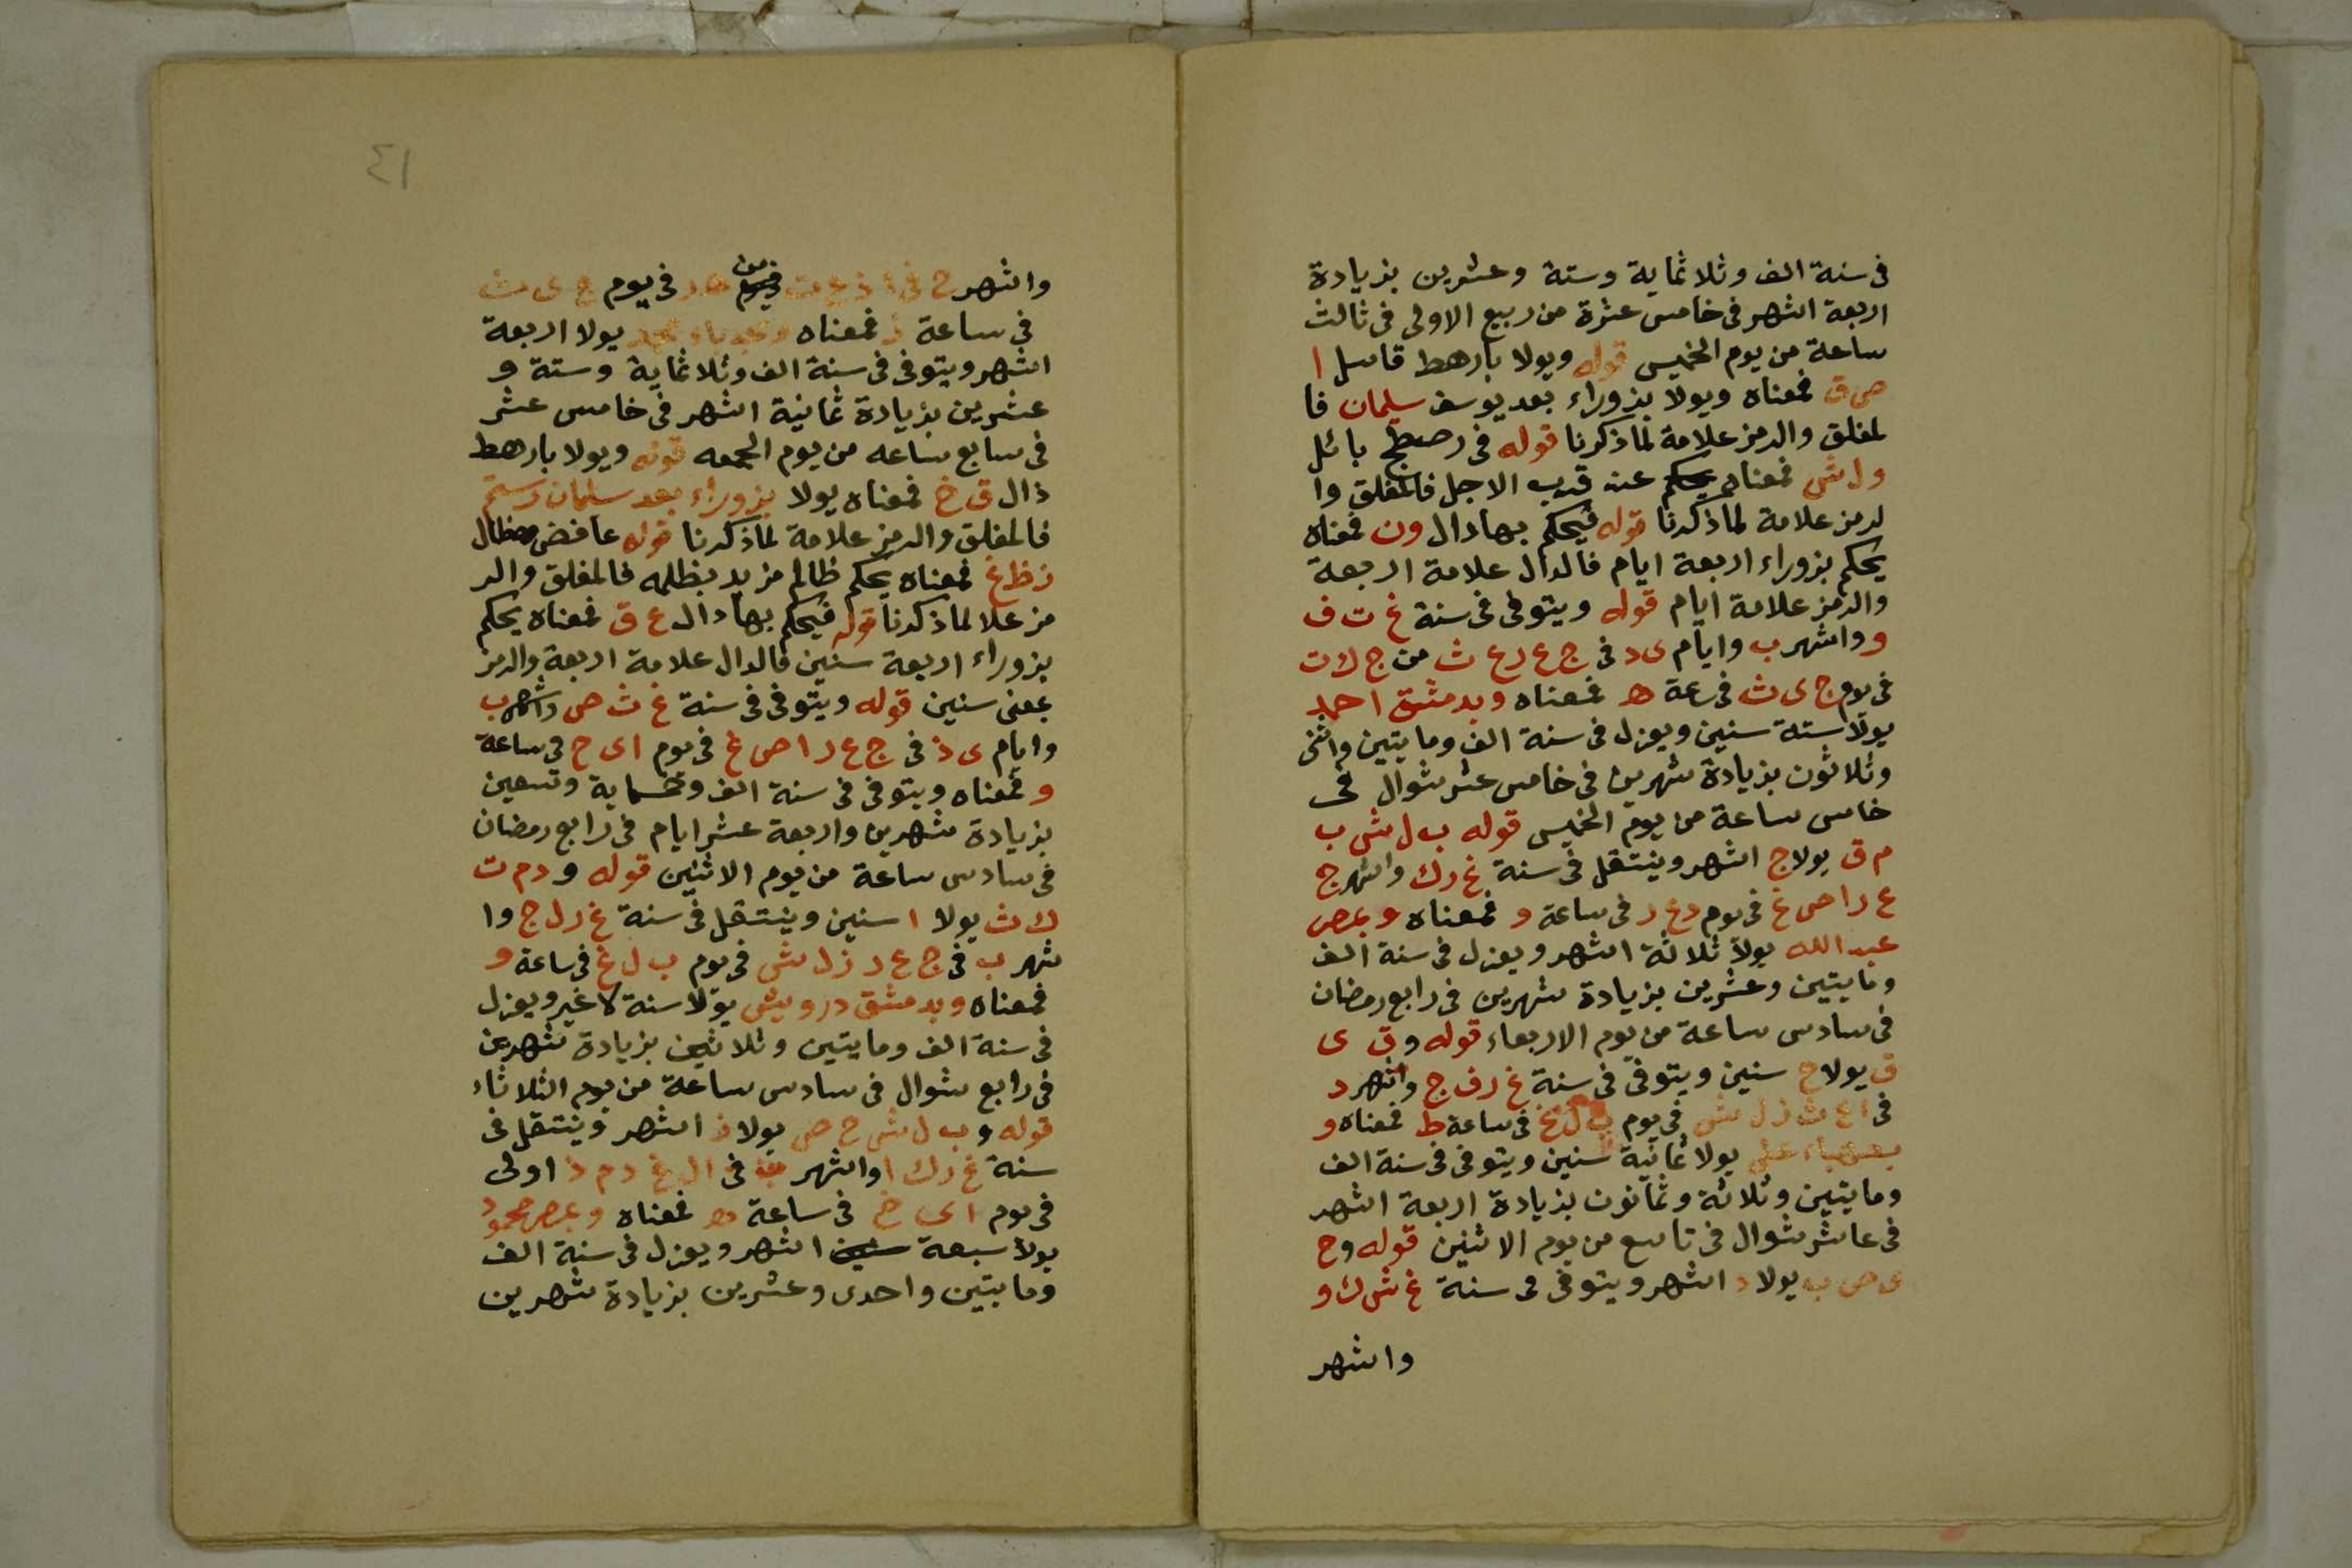 فى سنة الف وثلاثماية وستة وعشرين بزيادة
اربعة اشهر فى خامس عشرة من ربيع الاولى فى ثالث
ساعة من يوم الخميس قوله ويولا بارهط قاسل ا
ص ق فمعناه ويولا بزوراء بعد يوسف سليمان فا
لمغلق والرمز علامة لما ذكرنا قوله فى بائل
ول ش فمعناه عند قرب الاجل فالمغلق وا
لرمز علامة لما ذكرنا قوله فيحكم بها دال ون فمعناه
يحكم بزوراء اربعة ايام فالدال علامة اربعة
والرمز علامة ايام قوله ويتوفى فى سنة غ ت ف
و واشهر ب وايام ى د فى ج ع ر ع ث من ج ك ت
فى يوم ج ى ث فى سعة ه فمعناه وبدمشق احمد
يولا ستة سنين ويعزل فى سنة الف ومايتين واثنى
وثلاثون بزيادة شهرين فى خامس عشر شوال فى
خامس ساعة من يوم الخميس قوله ب ل ش ب
م ق يولا ج اشهر وينتقل فى سنة غ ر ك واشهر ج
ع ر ا ص غ فى يوم د ع ر فى ساعة و فمعناه وبمصر
عبد الله يولا ثلاثة اشهر ويعزل فى سنة الف
ومايتين وعشرين بزيادة شهرين فى رابع رمضان
فى سادس ساعة من يوم الاربعاء قوله و ق ى
ق يولا ح سنين ويتوفى فى سنة غ ر ف ج واشهر د
فى ا ع ث ز ل ش فى يوم ب ل غ فى ساعة ط فمعناه و
على يولا ثمانية سنين ويتوفى فى سنة الف
ومايتين وثلاثة وثمانون بزيادة اربعة اشهر
فى عاشر شوال فى تاسع من يوم الاثنين قوله وح
ى ص ب يولا د اشهر ويتوفى فى سنة غ ش ك و
واشهر
٤١
واشهر ح فى فى يوم ج ى ث
فى ساعة ز فمعناه محمد يولا اربعة
اشهر ويتوفى فى سنة الف وثلاثماية وستة و
عشرين بزيادة ثمانية اشهر فى خامس عشر
فى سابع ساعه من يوم الجمعه قوله ويولا بارهط
ذال ق خ فمعناه يولا بزوراء بعد سلمان رستم
فالمغلق والرمز علامة لما ذكرنا قوله
ز ظ غ فمعناه يحكم ظالم مزيد بظلمه فالمغلق والر
مز علا لما ذكرنا قوله فيحكم بها دال ع ق فمعناه يحكم
بزوراء اربعة سنين فالدال علامة اربعة والرمز
بمعنى سنين قوله ويتوفى فى سنة غ ث ص واشهر ب
وايام ى ذ فى ج ع ر ا ص غ فى يوم ا ى ح فى ساعة
و فمعناه ويتوفى فى سنة الف وخسماية وتسعين
بزيادة شهرين واربعة عشر ايام فى رابع رمضان
فى سادس ساعة من يوم الاثنين قوله و د م ت
ك ث يولا ا سنين وينتقل فى سنة غ ر ل ج وا
شهر ب فى ج ع ر ز ل ش فى يوم ب ل غ فى ساعة و
فمعناه وبدمشق درويش يولا سنة لا غير ويعزل
فى سنة الف ومايتين وثلاثين بزيادة شهرين
فى رابع شوال فى سادس ساعة من يوم الثلاثاء
قوله و ب ل ش ح ص يولا ز اشهر وينتقل فى
سنة غ ر ك ا واشهر فى ا ل غ د م ذ اولى
فى يوم ا ى خ فى ساعة ه فمعناه وبمصر محمود
يولا سبعة اشهر ويعزل فى سنة الف
ومايتين واحدى وعشرين بزيادة شهرين